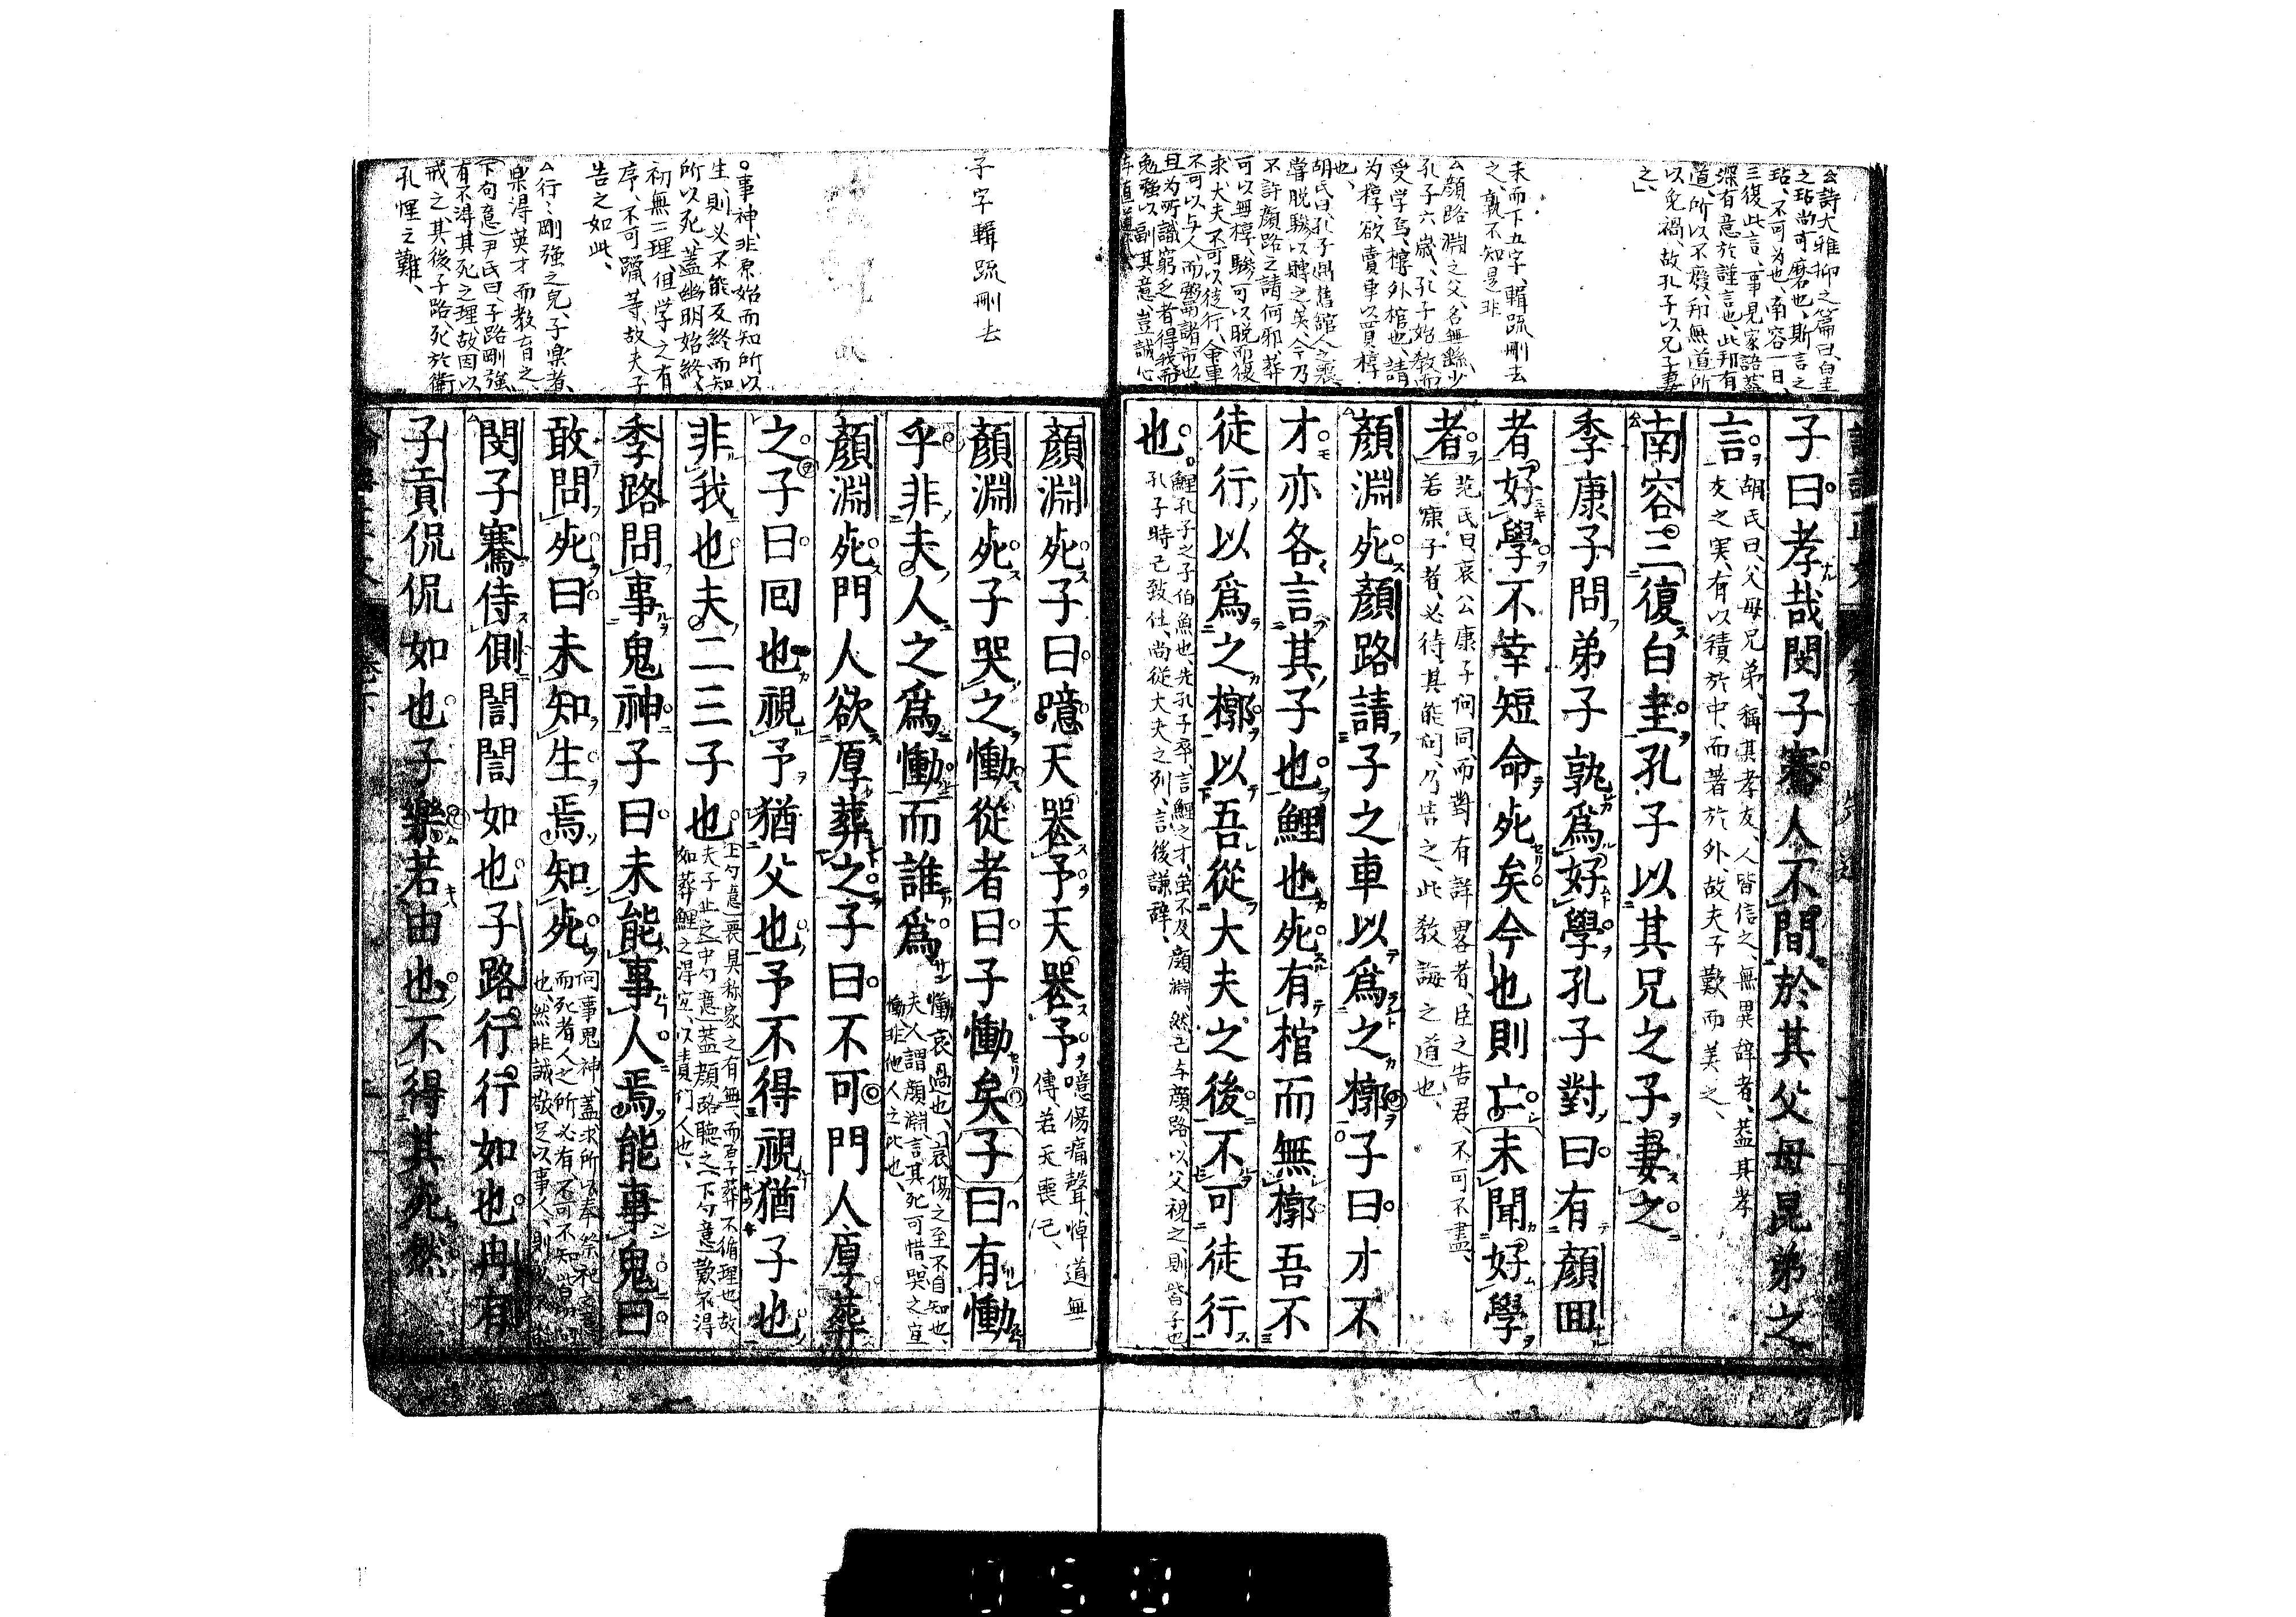 子曰孝哉閔子騫人不間於其父母昆弟之
言
胡氏曰、父母兄弟、稱其孝友、人皆信之、無異辞者、蓋其孝
友之実、有以積於中、而著於外、故夫子歎而美之、
南容三復白圭孔子以其兄之子妻之
季康子問弟子孰爲好學孔子對曰有顏回
者好學不幸短命死矣今也則亡未聞好學
者
范氏曰、哀公康子問同、而對有詳畧者、臣之告君、不可不盡、
若康子者、必待其能問、乃告之、此教誨之道也、
顏淵死顏路請子之車以爲之槨子曰才不
才亦各言其子也鯉也死有棺而無槨吾不
徒行以爲之槨以吾從大夫之後不可徒行
也
鯉孔子之子伯魚也、先孔子卒、言鯉之才、虽不及顔淵、然己与顔路、以父視之、則皆子也
孔子時已致仕、尚從大夫之列、言後謙辞、
顏淵死子曰噫天喪予天喪予
噫傷痛聲、悼道無
傳、若天喪己、
顏淵死子哭之慟從者曰子慟矣子曰有慟
乎非夫人之爲慟而誰爲
慟哀過也、哀傷之至、不自知也、
夫人謂顔淵、言其死可惜、哭之宜
慟、非他人之比也、
顏淵死門人欲厚葬之子曰不可門人厚葬
之子曰回也視予猶父也予不得視猶子也
非我也夫二三子也
上句意喪具称家之有無、而貧葬不循理也、故
夫子止之、中句意蓋顔路聴之、下句意歎不得
如葬鯉之得宜、以責門人也、
季路問事鬼神子曰未能事人焉能事鬼曰
敢問死曰未知生焉知死
問事鬼神、蓋求所以奉祭祀之意
而死者人之所必有、不可不知、皆切問
也、然非誠敬足以事人、則
閔子騫侍側誾誾如也子路行行如也冉有
子貢侃侃如也子樂若由也不得其死然
公詩大雅抑之篇曰、白圭
之玷、尚可磨也、斯言之
玷、不可为也、南容一日、
三復此言、事見家語、蓋
深有意於謹言也、此邦有
道、所以不廢、邦無道、所
以免禍、故孔子以兄子妻
之、
未而下五字、輯疏删去
之、孰不知是非
公顔路淵之父、名無繇、少
孔子六歳、孔子始教而
受学焉、槨外棺也、請
为槨、欲賣車以買槨
也、
胡氏曰、孔子遇舊舘人之喪、
嘗脱驂以賻之矣、今乃
不許顔路之請何邪、葬
可以無槨、驂可以脱而復
求、大夫不可以徒行、命車
不可以与人、而鬻諸市也、
且为所識窮乏者得我而
勉強以副其意、豈誠心
子字輯疏删去
○事神、非原始而知所以
生、則必不能反終而知
所以死、蓋幽明始終、
初無二理、但学之有
序、不可躐等、故夫子
告之如此、
公行〻剛強之皃、子楽者、
楽得英才而教育之、
下句意尹氏曰、子路剛強
有不得其死之理、故因以
戒之、其後子路死於衛
孔悝之難、